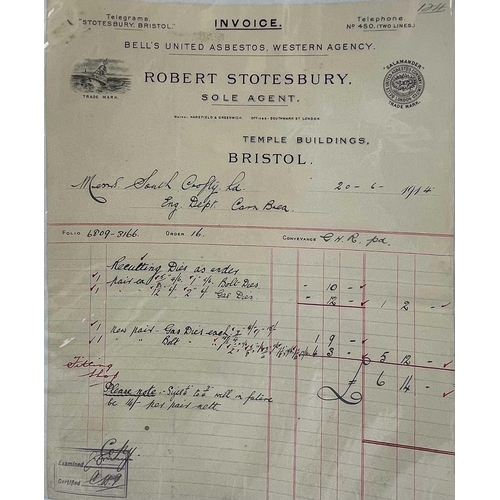 Telegrams.
"STOTESBURY, BRISTOL."
INVOICE.
Telephone.
No 450, (TWO LINES.)
BELL'S UNITED ASBESTOS, WESTERN AGENCY.
ROBERT STOTESBURY.
SOLE AGENT.
TRADE MARK.
"SALAMANDER"
TRADE MARK.
Works: HAREFIELD & GREENWICH. Offices: SOUTHWARK ST. LONDON.
TEMPLE BUILDINGS,
BRISTOL.
Messrs South Crofty Ld 20-6-1914
Eng. Dept Carn Brea
FOLIO 6809-3166. ORDER 16. CONVEYANCE G.W.R. pd
Recutting Dies as order
1 pair ea Bolt Dies - 10 -
1 Gas Dies - 12 - 1 2 -
1 new pair Gas Dies each 1 9 -
1 " " Bolt " 6 3 - 5 12 -
Fitting
Shop
£ 6 14 -
Please note - will in future
be 14/- per pair nett.
Examined
Certified